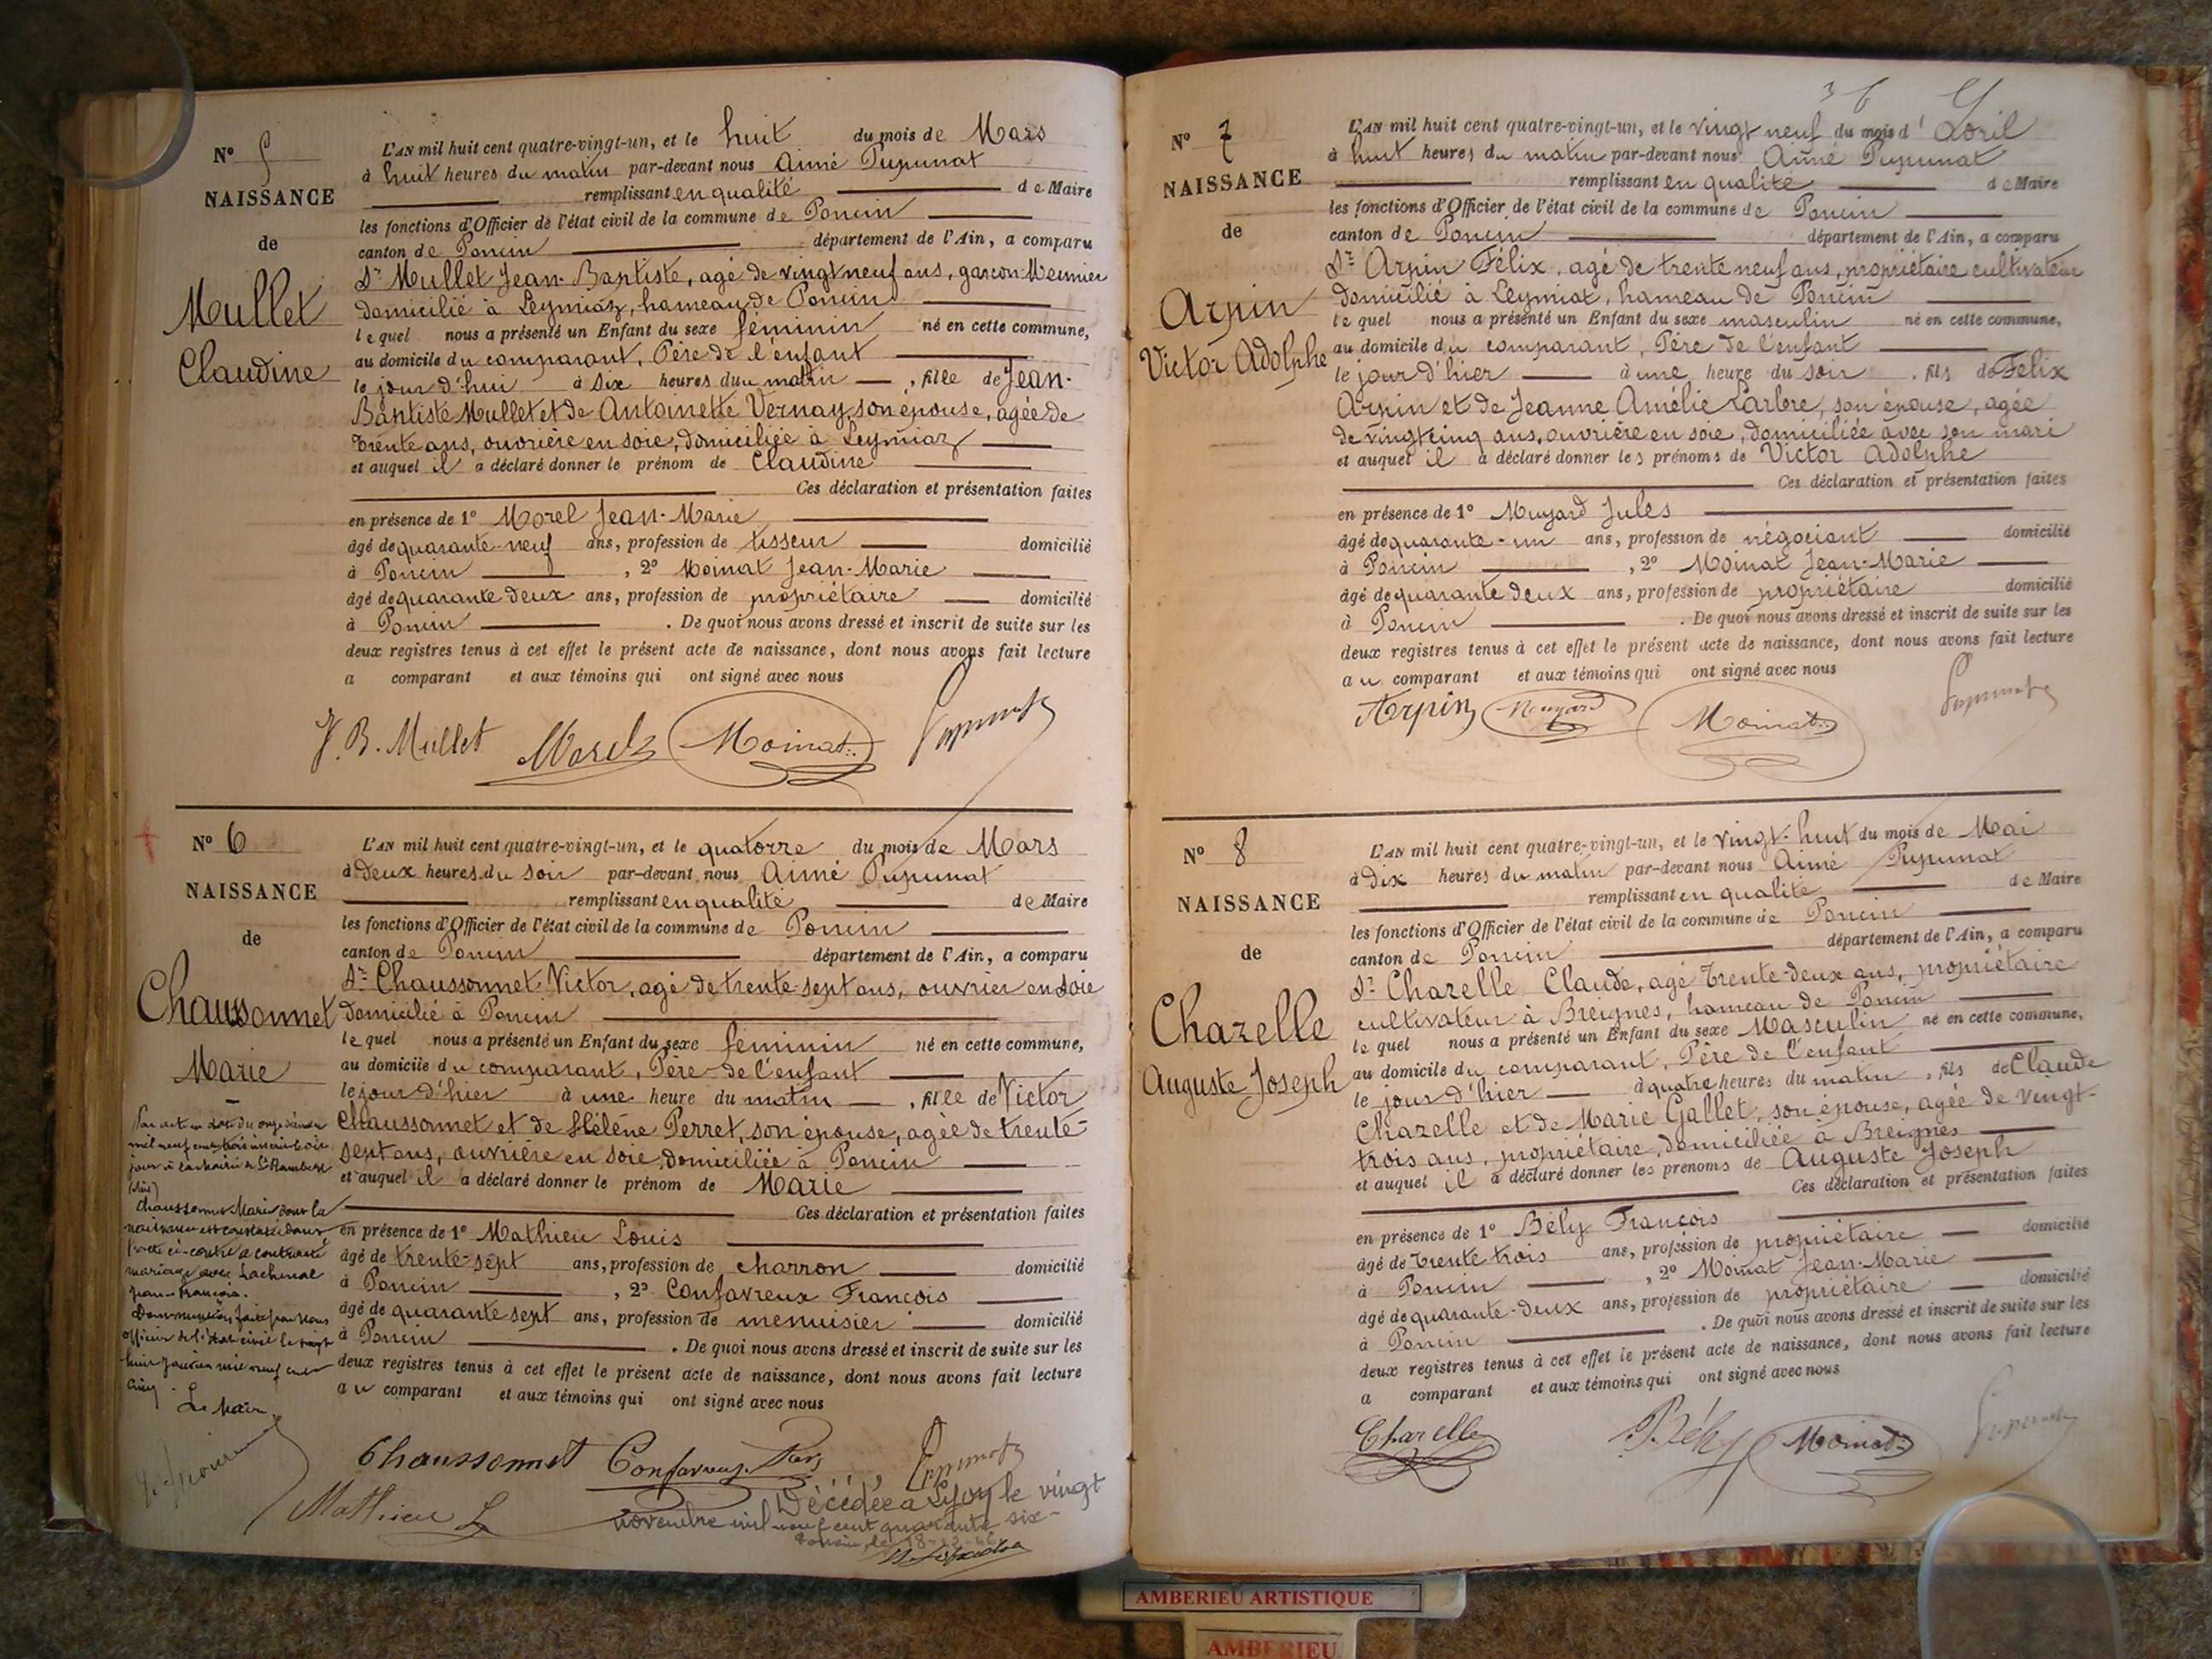 N° 5
NAISSANCE
de
Mullet
Claudine
L'AN mil huit cent quatre-vingt-un, et le huit du mois de Mars
à huit heures du matin par-devant nous Aimé Pupunat
remplissant en qualité de Maire
les fonctions d'Officier de l'état civil de la commune de Poncin
canton de Poncin département de l'Ain, a comparu
Sr Mullet Jean-Baptiste, agé de vingt neuf ans, garçon Meunier
domicilié à Leymiaz, hameau de Poncin
lequel nous a présenté un Enfant du sexe féminin né en cette commune,
au domicile du comparant, Père de l'enfant
le jour d'hui à six heures du matin, fille de Jean-
Baptiste Mullet et de Antoinette Vernay, son épouse, agée de
trente ans, ouvrière en soie, domiciliée à Leymiaz
et auquel il a déclaré donner le prénom de Claudine
Ces déclaration et présentation faites
en présence de 1° Morel Jean-Marie
âgé de quarante-neuf ans, profession de tisseur domicilié
à Poncin, 2° Moinat Jean-Marie
âgé de quarante deux ans, profession de propriétaire domicilié
à Poncin. De quoi nous avons dressé et inscrit de suite sur les
deux registres tenus à cet effet le présent acte de naissance, dont nous avons fait lecture
a comparant et aux témoins qui ont signé avec nous
J. B. Mullet Morel Moinat Pupunat
N° 6
NAISSANCE
de
Chaussonnet
Marie
L'AN mil huit cent quatre-vingt-un, et le quatorze du mois de Mars
à deux heures du soir par-devant nous Aimé Pupunat
remplissant en qualité de Maire
les fonctions d'Officier de l'état civil de la commune de Poncin
canton de Poncin département de l'Ain, a comparu
Sr Chaussonnet Victor, agé de trente-sept ans, ouvrier en soie
domicilié à Poncin
lequel nous a présenté un Enfant du sexe féminin né en cette commune,
au domicile du comparant, Père de l'enfant
le jour d'hier à une heure du matin, fille de Victor
Chaussonnet et de Hélène Perret, son épouse, agée de trente-
sept ans, ouvrière en soie, domiciliée à Poncin
et auquel il a déclaré donner le prénom de Marie
Ces déclaration et présentation faites
en présence de 1° Mathieu Louis
âgé de trente-sept ans, profession de charron domicilié
à Poncin, 2° Confavreux François
âgé de quarante sept ans, profession de menuisier domicilié
à Poncin. De quoi nous avons dressé et inscrit de suite sur les
deux registres tenus à cet effet le présent acte de naissance, dont nous avons fait lecture
au comparant et aux témoins qui ont signé avec nous
Par acte en date du onze
mil neuf cent trois inscrit
jour à la Mairie de St Rambert
Chaussonnet Marie dont la
naissance est constatée dans
l'acte ci-contre a contracté
mariage avec Lachenal
Jean-François.
officier de l'état civil le vingt
huit Janvier mil neuf cent
cinq.
Le Maire
Chaussonnet Confavreux Pupunat
Mathieu L
Décédée à Lyon le vingt
novembre mil neuf cent quarante six-
Poncin le
3 6
N° 7
NAISSANCE
de
Arpin
Victor Adolphe
L'AN mil huit cent quatre-vingt-un, et le vingt neuf du mois d'Avril
à huit heures du matin par-devant nous Aimé Pupunat
remplissant en qualité de Maire
les fonctions d'Officier de l'état civil de la commune de Poncin
canton de Poncin département de l'Ain, a comparu
Sr Arpin Félix, agé de trente neuf ans, propriétaire cultivateur
domicilié à Leymiat, hameau de Poncin
lequel nous a présenté un Enfant du sexe masculin né en cette commune,
au domicile du comparant, Père de l'enfant
le jour d'hier à une heure du soir, fils de Félix
Arpin et de Jeanne Amélie Larbre, son épouse, agée
de vingt cinq ans, ouvrière en soie, domiciliée avec son mari
et auquel il a déclaré donner les prénoms de Victor Adolphe
Ces déclaration et présentation faites
en présence de 1° Muyard Jules
âgé de quarante-un ans, profession de négociant domicilié
à Poncin, 2° Moinat Jean-Marie
âgé de quarante deux ans, profession de propriétaire domicilié
à Poncin. De quoi nous avons dressé et inscrit de suite sur les
deux registres tenus à cet effet le présent acte de naissance, dont nous avons fait lecture
au comparant et aux témoins qui ont signé avec nous
Arpin Muyard Moinat Pupunat
N° 8
NAISSANCE
de
Chazelle
Auguste Joseph
L'AN mil huit cent quatre-vingt-un, et le vingt-huit du mois de Mai
à dix heures du matin par-devant nous Aimé Pupunat
remplissant en qualité de Maire
les fonctions d'Officier de l'état civil de la commune de Poncin
canton de Poncin département de l'Ain, a comparu
Sr Chazelle Claude, agé trente-deux ans, propriétaire
cultivateur à Breignes, hameau de Poncin
lequel nous a présenté un Enfant du sexe Masculin né en cette commune,
au domicile du comparant, Père de l'enfant
le jour d'hier à quatre heures du matin, fils de Claude
Chazelle et de Marie Gallet, son épouse, agée de vingt-
trois ans, propriétaire, domiciliée à Breignes
et auquel il a déclaré donner les prénoms de Auguste Joseph
Ces déclaration et présentation faites
en présence de 1° Bély François
âgé de trente trois ans, profession de propriétaire domicilié
à Poncin, 2° Moinat Jean-Marie
âgé de quarante-deux ans, profession de propriétaire domicilié
à Poncin. De quoi nous avons dressé et inscrit de suite sur les
deux registres tenus à cet effet le présent acte de naissance, dont nous avons fait lecture
a comparant et aux témoins qui ont signé avec nous
Chazelle Bély Moinat Pupunat
AMBERIEU ARTISTIQUE
AMBERIEU